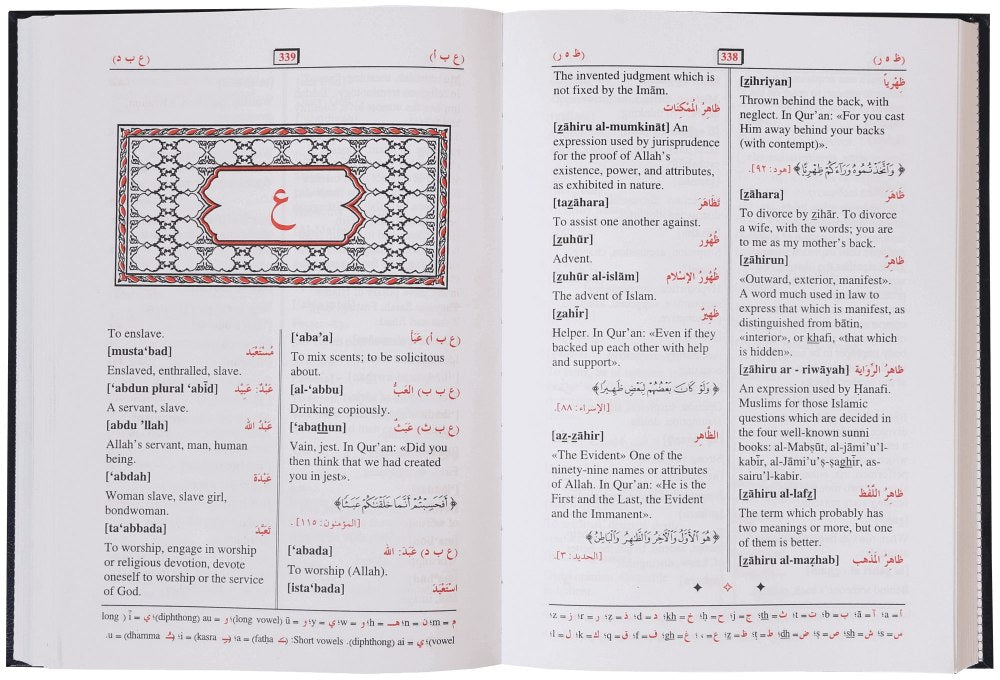 (ظ ه ر) 338 (ظ ه ر)
ظِهْرِياً [z̲ihriyan]
Thrown behind the back, with
neglect. In Qur’an: «For you cast
Him away behind your backs
(with contempt)».
﴿ وَٱتَّخَذْتُمُوهُ وَرَآءَكُمْ ظِهْرِيًّا ﴾ [هود: ٩٢].
ظَاهَرَ [z̲āhara]
To divorce by z̲ihār. To divorce
a wife, with the words; you are
to me as my mother’s back.
ظاهِرٌ [z̲āhirun]
«Outward, exterior, manifest».
A word much used in law to
express that which is manifest, as
distinguished from bātin,
«interior», or k̲h̲afi, «that which
is hidden».
ظاهِرُ الرِّوَاية [z̲āhiru ar - riwāyah]
An expression used by Ḥanafi.
Muslims for those Islamic
questions which are decided in
the four well-known sunni
books: al-Mabṣūt, al-jāmi’u’l-
kabīr, al-Jāmi’u’ṣ-ṣag̲h̲īr, as-
sairu’l-kabir.
ظاهِرُ اللَّفْظ [z̲āhiru al-lafz̲]
The term which probably has
two meanings or more, but one
of them is better.
ظاهِرُ المَذْهَب [z̲āhiru al-maẕhab]
The invented judgment which is
not fixed by the Imām.
ظاهِرُ المُمْكِنَات
[z̲āhiru al-mumkināt] An
expression used by jurisprudence
for the proof of Allah’s
existence, power, and attributes,
as exhibited in nature.
تَظَاهَرَ [taz̲āhara]
To assist one another against.
ظُهُور [z̲uhūr]
Advent.
ظُهُورُ الإسْلام [z̲uhūr al-islām]
The advent of Islam.
ظَهِيرٌ [z̲ahīr]
Helper. In Qur’an: «Even if they
backed up each other with help
and support».
﴿ وَلَوْ كَانَ بَعْضُهُمْ لِبَعْضٍ ظَهِيرًا ﴾
[الإسراء: ٨٨].
الظَّاهِر [az̲-z̲āhir]
«The Evident» One of the
ninety-nine names or attributes
of Allah. In Qur’an: «He is the
First and the Last, the Evident
and the Immanent».
﴿ هُوَ ٱلْأَوَّلُ وَٱلْآخِرُ وَٱلظَّٰهِرُ وَٱلْبَاطِنُ ﴾
[الحديد: ٣].
ء = ’؛ أ = a؛ آ = ā؛ ب = b؛ ت = t؛ ث = t̲h̲؛ ج = j؛ ح = ḥ؛ خ = k̲h̲؛ د = d؛ ذ = ẕ؛ ر = r؛ ز = z؛
س = s؛ ش = s̲h̲؛ ص = ṣ؛ ض = d̲h̲؛ ط = ṭ؛ ظ = z̲؛ ع = ‘؛ غ = g̲h̲؛ ف = f؛ ق = q؛ ك = k؛ ل = l؛
(ع ب أ) 339 (ع ب د)
ع
(ع ب أ) عَبَأ [‘aba’a]
To mix scents; to be solicitous
about.
(ع ب ب) العَبُّ [al-‘abbu]
Drinking copiously.
(ع ب ث) عَبَثٌ [‘abat̲h̲un]
Vain, jest. In Qur’an: «Did you
then think that we had created
you in jest».
﴿ أَفَحَسِبْتُمْ أَنَّمَا خَلَقْنَٰكُمْ عَبَثًا ﴾
[المؤمنون: ١١٥] .
(ع ب د) عَبَدَ: الله [‘abada]
To worship (Allah).
اسْتَعْبَدَ [ista‘bada]
To enslave.
مُسْتَعْبَد [musta‘bad]
Enslaved, enthralled, slave.
عَبْدٌ: عَبِيْد [‘abdun plural ‘abīd]
A servant, slave.
عَبْدُ الله [abdu ’llah]
Allah’s servant, man, human
being.
عَبْدَة [‘abdah]
Woman slave, slave girl,
bondwoman.
تَعَبَّدَ [ta‘abbada]
To worship, engage in worship
or religious devotion, devote
oneself to worship or the service
of God.
م = m؛ ن = n؛ هـ = h؛ و = w؛ ي = y؛ و = ū (long vowel)؛ و = au (diphthong)؛ ي = ī (long
vowel)؛ ي = ai (diphthong). Short vowels: a = (fatḥa)؛ i = (kasra)؛ u = (dhamma).